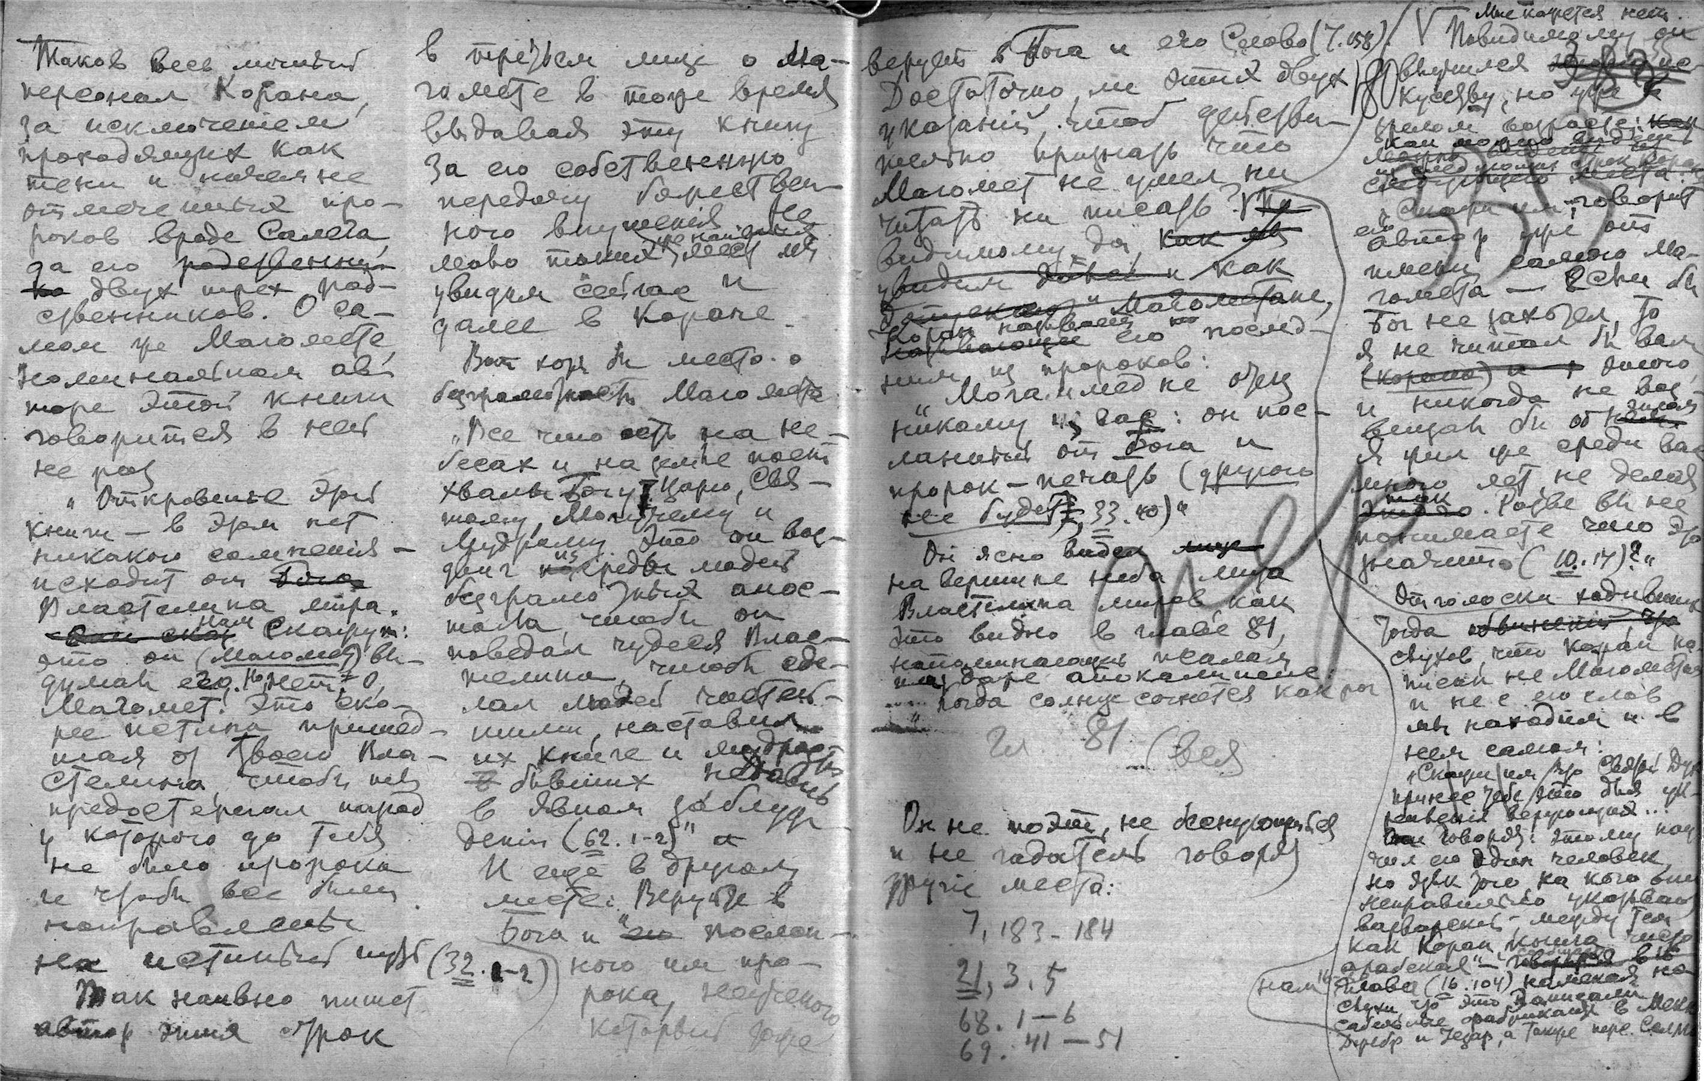 Таков весь личный
персонал Корана,
за исключением
проходящих как
тени и ничем не
отмеченных про-
роков вроде Салега,
да его родственни
ко двух трех род-
ственников. О са-
мом же Магомете,
номинальном ав-
торе этой книги
говорится в ней
не раз
"Откровение этой
книги – в этом нет
никакого сомнения –
исходит от Бога
Властелина мира.
нам скажут:
это он (Магомет) вы-
думал его. Нет, о,
Магомет! Это ско-
рее истина пришед-
шая от Твоего Вла-
стелина, чтобы ты
предостерегал народ
у которого до тебя
не было пророка
и чтобы все были
направлены
на истинный путь (32. 1-2)
Так наивно пишет
автор этих строк
в третьем лице о Ма-
гомете в тоже время
выдавая эту книгу
за его собственную
передачу божествен-
ного внушения. Не
мало таких же наивных мест мы
увидим сейчас и
далее в Коране.
Вот хотя бы место о
безграмотности Магомета
"Все что есть на не-
бесах и на земле поет
хвалы Богу Царю, Свя-
тому, Могучему и
Мудрому. Это он воз-
двиг из среды людей
безграмотных апос-
тола, чтобы он
поведал чудеса Влас-
телина, чтоб сде-
лал людей чистей-
шими, наставил
их книге и мудрости
бывших недавно
в явном заблуж-
дении (62. 1-2)" и
И еще в другом
месте: Веруйте в
Бога и "его послан-
ного им про-
рока, неученого
который тоже
верует в Бога и его Слово (7.158).
Достаточно ли этих двух
указаний, чтоб действи-
тельно признать что
Магомет не умел ни
читать ни писать? По
видимому да, как мы
увидим далее и как
Магометане,
Коран называет
называющие его послед-
ним из пророков:
"Мога мед не отец
никому из вас: он пос-
ланный от Бога и
пророк – печать (другого
не будет, 33. 40)"
Он ясно видел лице
на вершине неба лица
Властелина миров, как
это видно в главе 81,
напоминающей псалом
на даре апокалипсис:
"когда солнце согнется
Гл 81 (вся
Он не поэт, не беснующийся
и не гадатель говорят
другие места:
7, 183 – 184
21, 3, 5
68. 1 – 6
69. 41 – 51
Мне кажется нет.
Повидимому он
выучился
искусству, но уже в
зрелом возрасте: как
"Скажи им, говорит
ему автор уже от
имени самого Ма-
гомета – Если бы
Бог не захотел, то
я не читал бы вам
(корана) и этого,
и никогда не воз
вещал бы об нем
Я жил уже среди вас
много лет, не делая
этого. Разве вы не
понимаете что это
значит (10. 17)?"
Отголоски ходивших
тогда обвинений что
слухов, что Коран на-
писан не Магометом
и не с его слов
мы находим и в
нем самом:
"Скажи им что Святой Дух
принес тебе это для ук-
репления верующих...
Они говорят: этому нау
чил его один человек,
но язык того, на кого они
неправильно указывают
варварский – между тем
как Коран книга чисто
арабская" – в 16
главе (16. 104) намекая на
слухи что это написали
сабельные фабриканты в Мекке
Джебр и Иезар, а также перс Салман